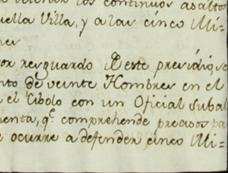 los continuos asalto
uella Villa, y a las cinco Mi=
nes
or resguardo De este presidio, se
nto de veinte Hombres en el
el Cibolo con un Oficial Subal
enta, q.e comprehende precisos pa
e ocurre a defender cinco Mi=